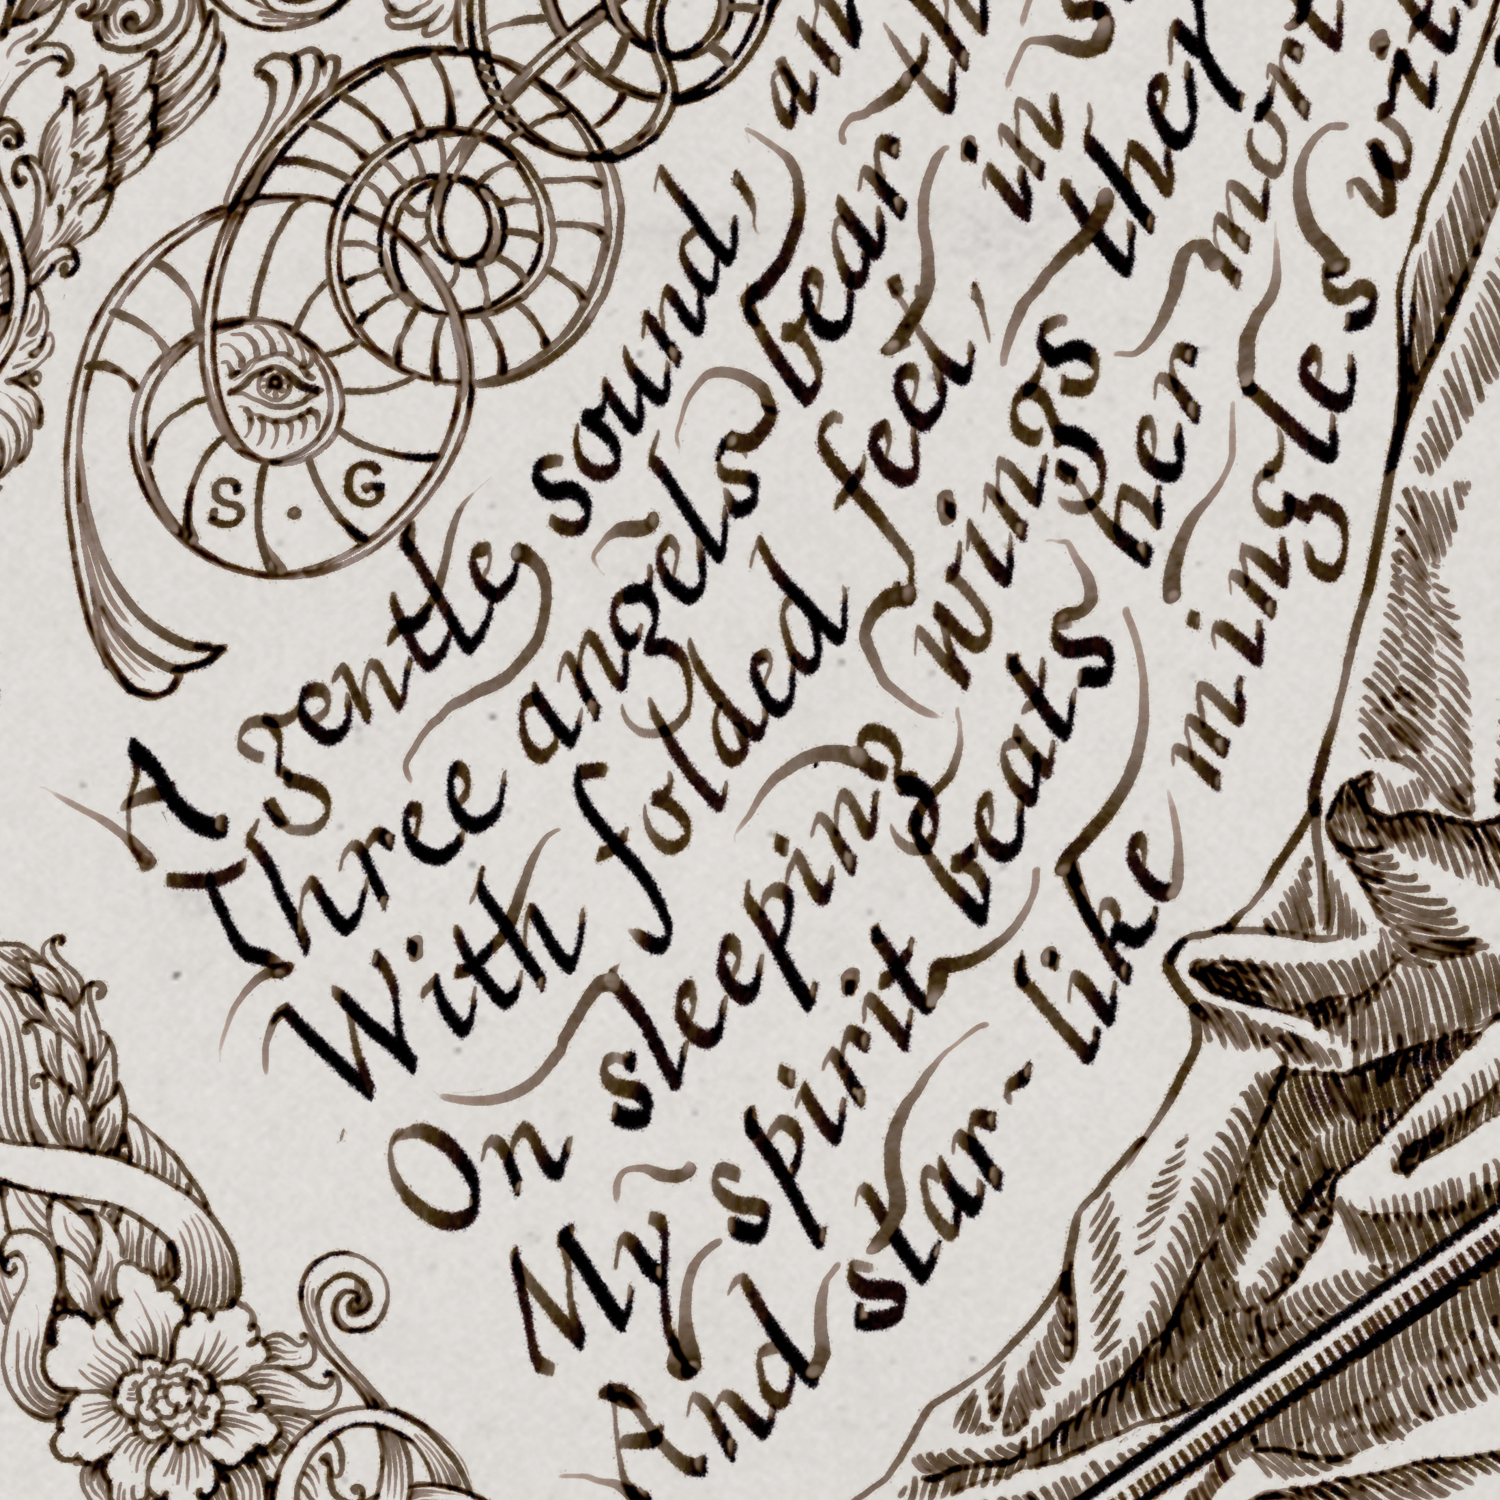 S · G
A gentle sound,
Three angels bear
With folded feet, in
On sleeping wings they
My spirit beats her
And star-like mingles